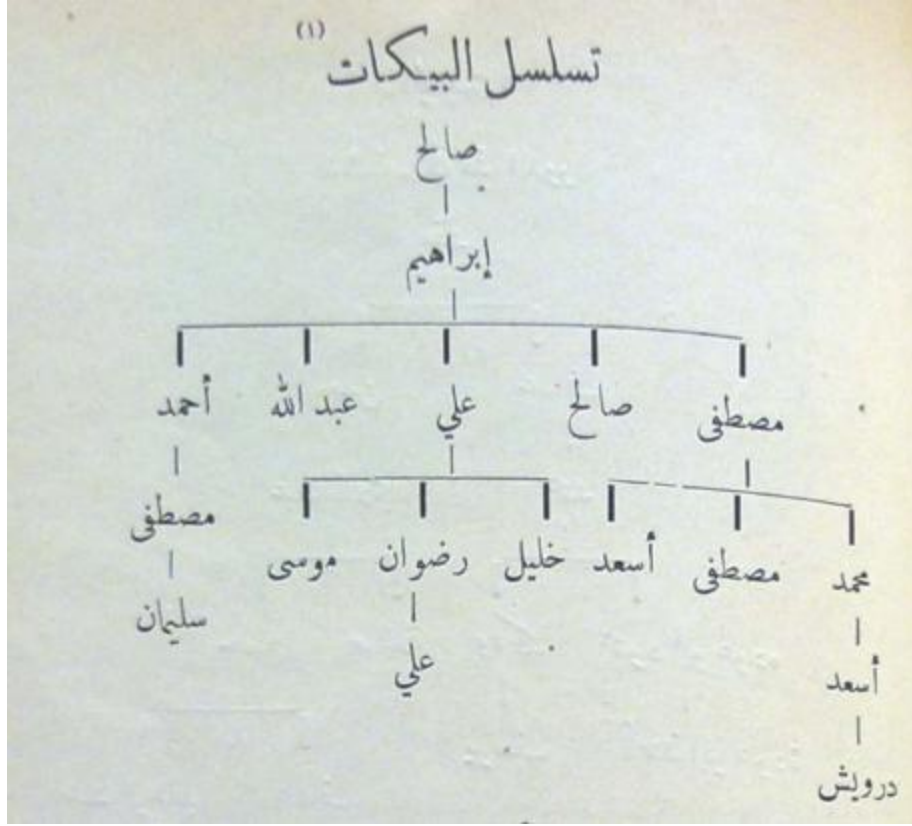 تسلسل البيكات (١)
صالح
إبراهيم
مصطفى صالح علي عبد الله أحمد
محمد مصطفى أسعد خليل رضوان موسى مصطفى
أسعد علي سليمان
درويش